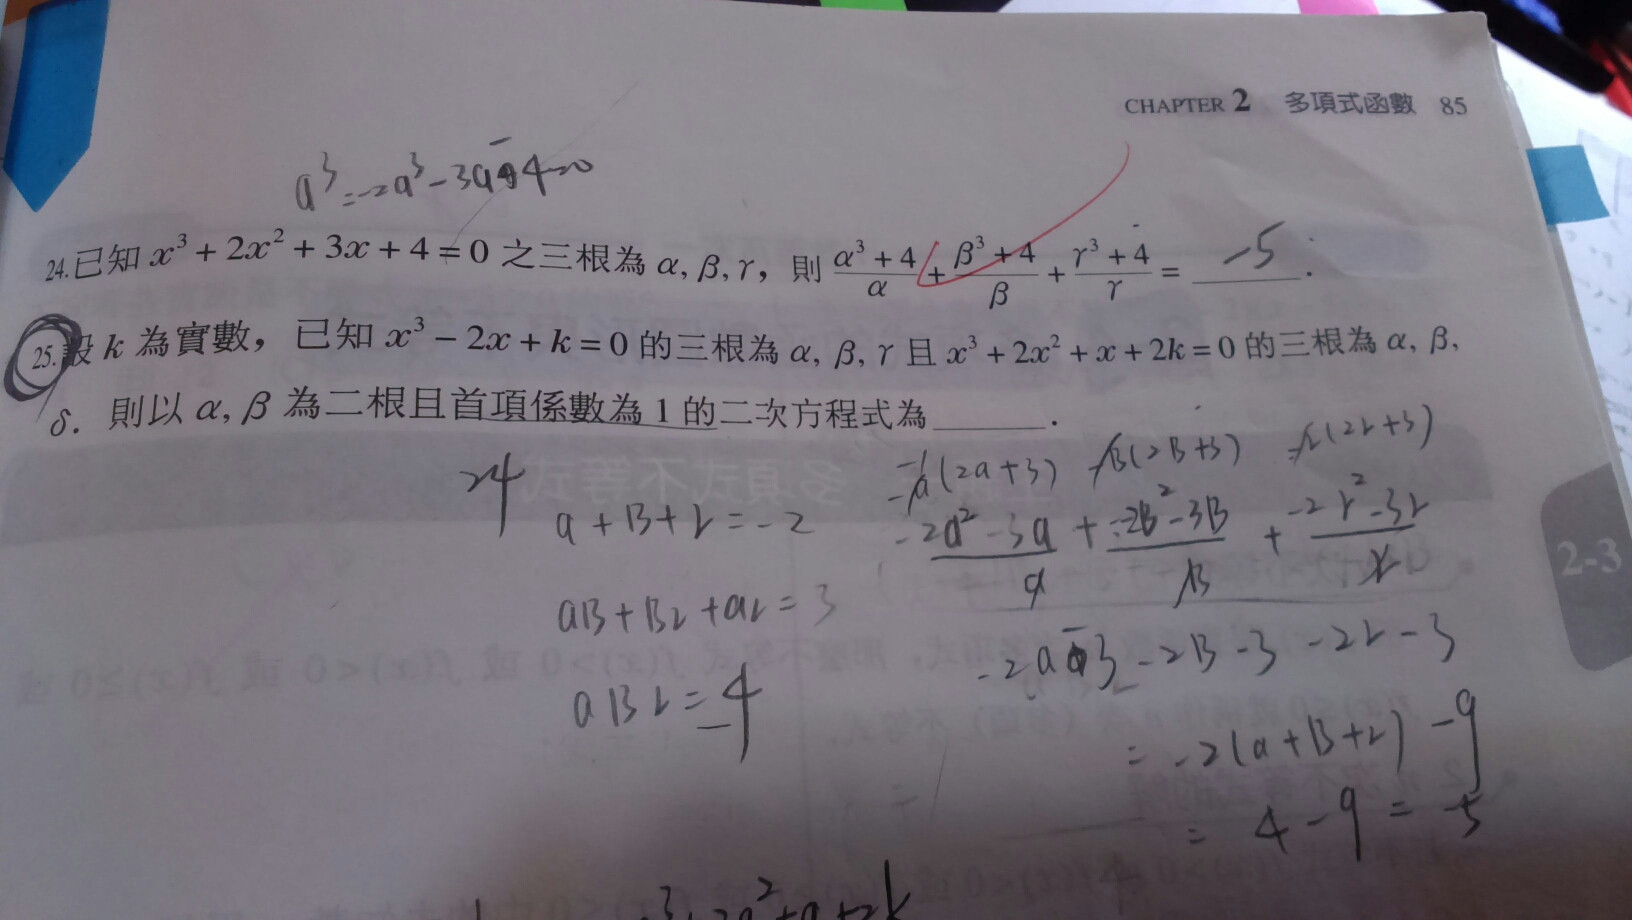 CHAPTER 2 多項式函數 85
a³=-2a³-3a-4=0
24.已知 x³ + 2x² + 3x + 4 = 0 之三根為 α, β, γ, 則 (α³ + 4)/α + (β³ + 4)/β + (γ³ + 4)/γ = -5 .
25.設 k 為實數, 已知 x³ − 2x + k = 0 的三根為 α, β, γ 且 x³ + 2x² + x + 2k = 0 的三根為 α, β,
δ. 則以 α, β 為二根且首項係數為 1 的二次方程式為 ______ .
24
a+B+r=-2
aB+Br+ar=3
aBr=-4
-a(2a+3) -B(2B+3) -r(2r+3)
(-2a²-3a)/a + (-2B²-3B)/B + (-2r²-3r)/r
-2a-3-2B-3-2r-3
= -2(a+B+r) -9
= 4-9 = -5
2-3